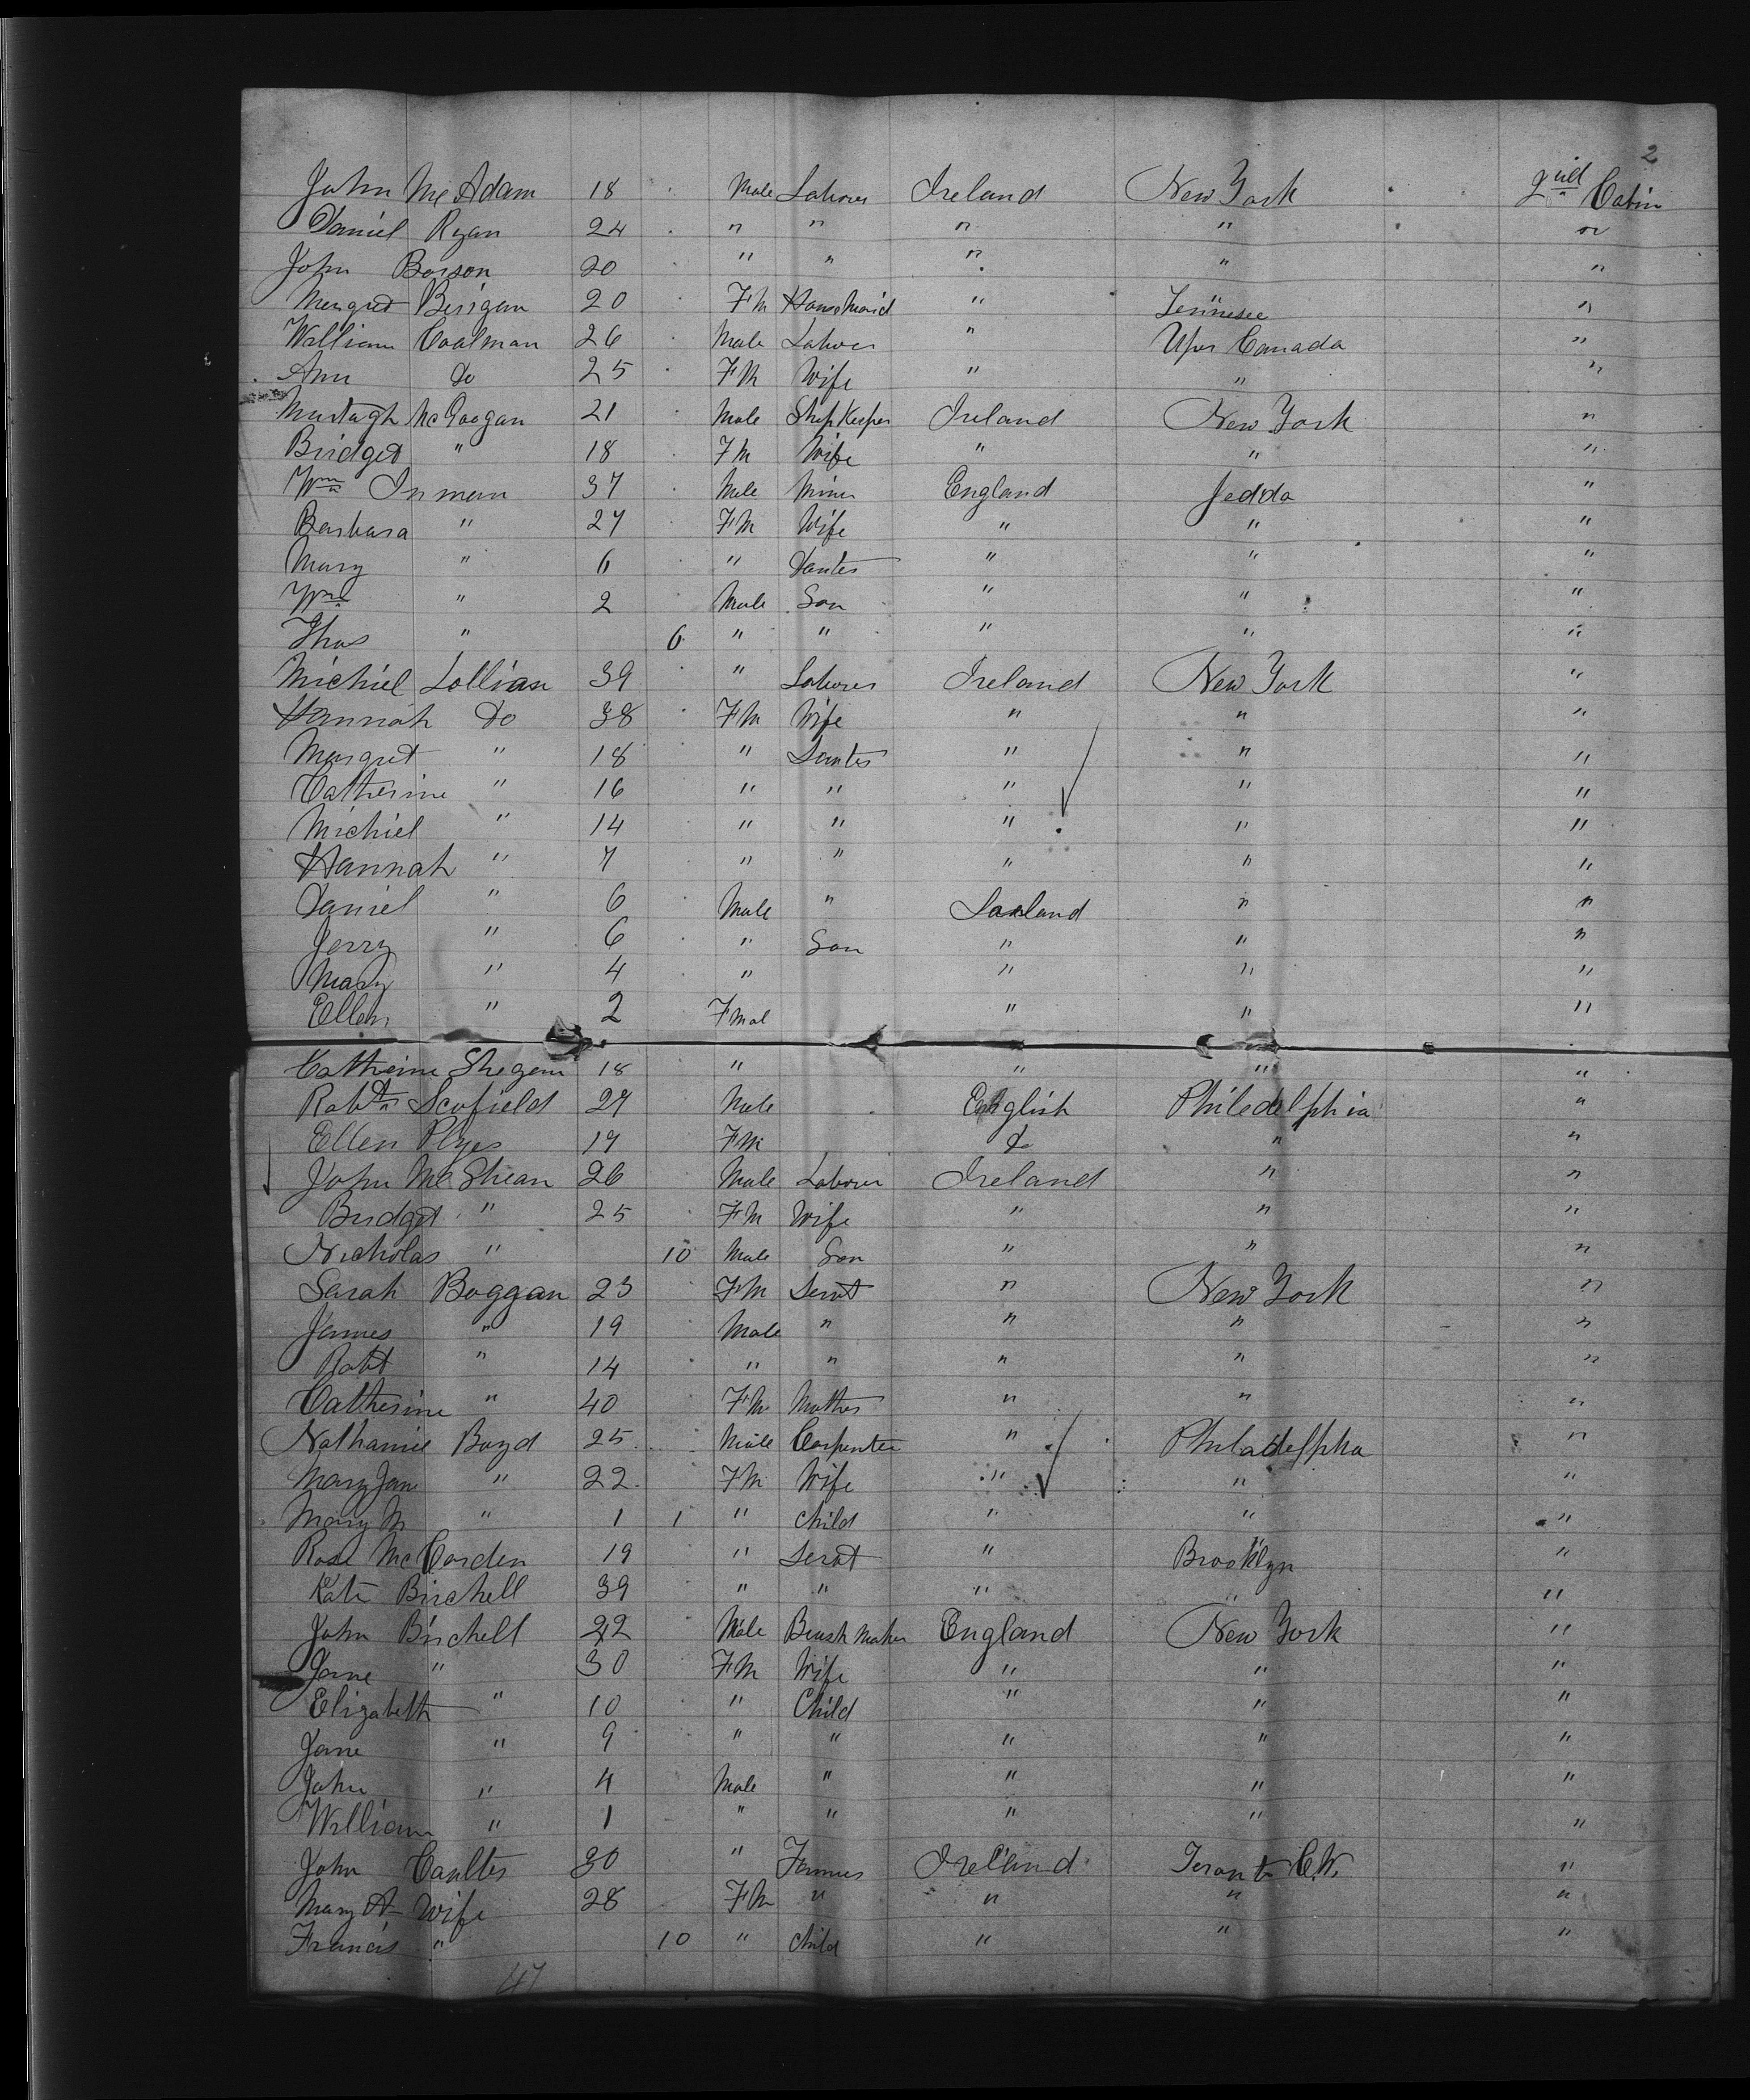 2
John McAdam 18 Male Laborer Ireland New York 2nd Cabin
Daniel Ryan 24 " " " " "
John Borson 20 " " " " "
Margret Berigan 20 FM HouseMaid " Tennesee "
William Coalman 26 Male Laborer " Uper Canada "
Ann Do 25 FM Wife " " "
Murtagh McGoogan 21 Male Shop Keeper Ireland New York "
Bridget " 18 FM Wife " " "
Wm Inman 37 Male Miner England Jedda "
Barbara " 27 FM Wife " " "
Mary " 6 " Dauter " " "
Wm " 2 Male Son " " "
Thos " 6 " " " " "
Michiel Lollian 39 " Laborer Ireland New York "
Hannah Do 38 FM Wife " " "
Margret " 18 " Dauter " " "
Catherine " 16 " " " " "
Michiel " 14 " " " " "
Hannah " 7 " " " " "
Daniel " 6 Male " " "
Jerry " 6 " Son " " "
Mary " 4 " " " "
Ellen " 2 Fmal " " "
Catherine 18 " " " "
Robt Scofield 27 Male English Philedelphia "
Ellen Plyes 17 FM Do " "
John McShean 26 Male Laborer Ireland " "
Bridget " 25 FM Wife " " "
Nicholas " 10 Male Son " " "
Sarah Boggan 23 FM Servt " New York "
James " 19 Male " " " "
Robt " 14 " " " " "
Catherine " 40 FM Mother " " "
Nathaniel Boyd 25 Male Carpenter " Philadelphia "
Mary Jane " 22 FM Wife " " "
Mary M " 1 1 " Child " " "
Rose McCarden 19 " Servt " Brooklyn "
Kate Birchell 39 " " " " "
John Birchell Male Brush Maker England New York "
Jane " 30 FM Wife " " "
Elizabeth " 10 " Child " " "
Jane " 9 " " " " "
John " 4 Male " " " "
William " 1 " " " " "
John Caulter 30 " Farmer Ireland Toronto C.W. "
Mary A Wife 28 FM " " " "
Francis " 10 " Child " " "
47